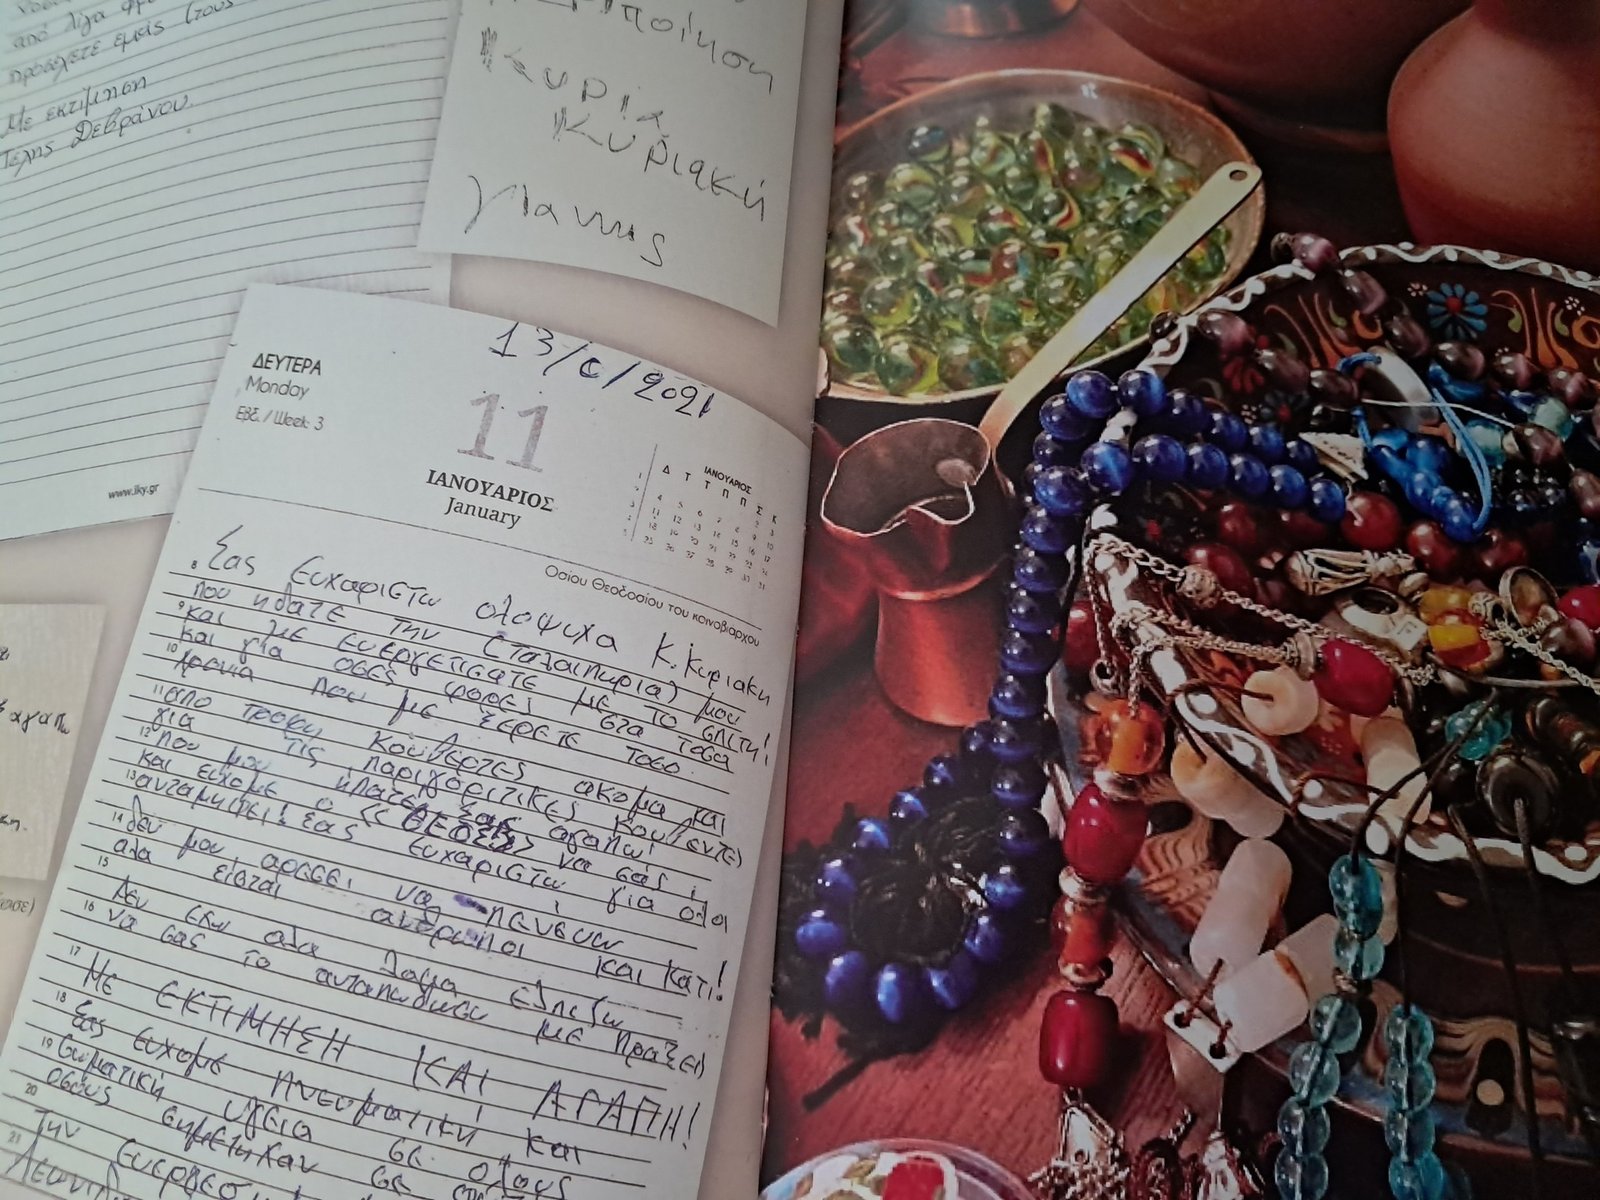 από λίγα
προσέχετε εμάς τους
Με εκτίμηση
Τέλης Δεβράνου
www.iky.gr
ποίηση
Κυρία
Κυριακή
γιαννης
13/6/2021
ΔΕΥΤΕΡΑ
Monday
Εβδ. / Week 3
11
ΙΑΝΟΥΑΡΙΟΣ
January
ΙΑΝΟΥΑΡΙΟΣ
Δ Τ Τ Π Π Σ Κ
1 2 3
4 5 6 7 8 9 10
11 12 13 14 15 16 17
18 19 20 21 22 23 24
25 26 27 28 29 30 31
Οσίου Θεοδοσίου του κοινοβιάρχου
8 Σας Ευχαριστω ολοψυχα Κ. Κυριακη
που ηδατε την (ταλαιπωρια) μου
9 και με ευεργετισατε με το σπιτι!
και για οσες φορες στα τοσα
10 χρονια που με ξερετε τοσο
11 απο τροφη κουβερτες ακομα και
για τις παριγοριτικες κουβεντες
12 που μου ηπατε σας αγαπω!
και ευχομε ο << ΘΕΟΣ >> να σας
13 ανταμηψει! σας ευχαριστω για ολα
14 δεν μου αρεσει να πενευω
αλα εισται ανθρωποι και κατι!
15 δεν εχω αλα λογια ελπιζω
16 να σας το ανταποδωσω με πραξει
17 ΜΕ ΕΚΤΙΜΗΣΗ ΚΑΙ ΑΓΑΠΗ!
18 Σας ευχομε πνευματικη και
19 σωματικη υγεια σε ολους
οσους σημετηχαν σε
20 την
21
αγαπω